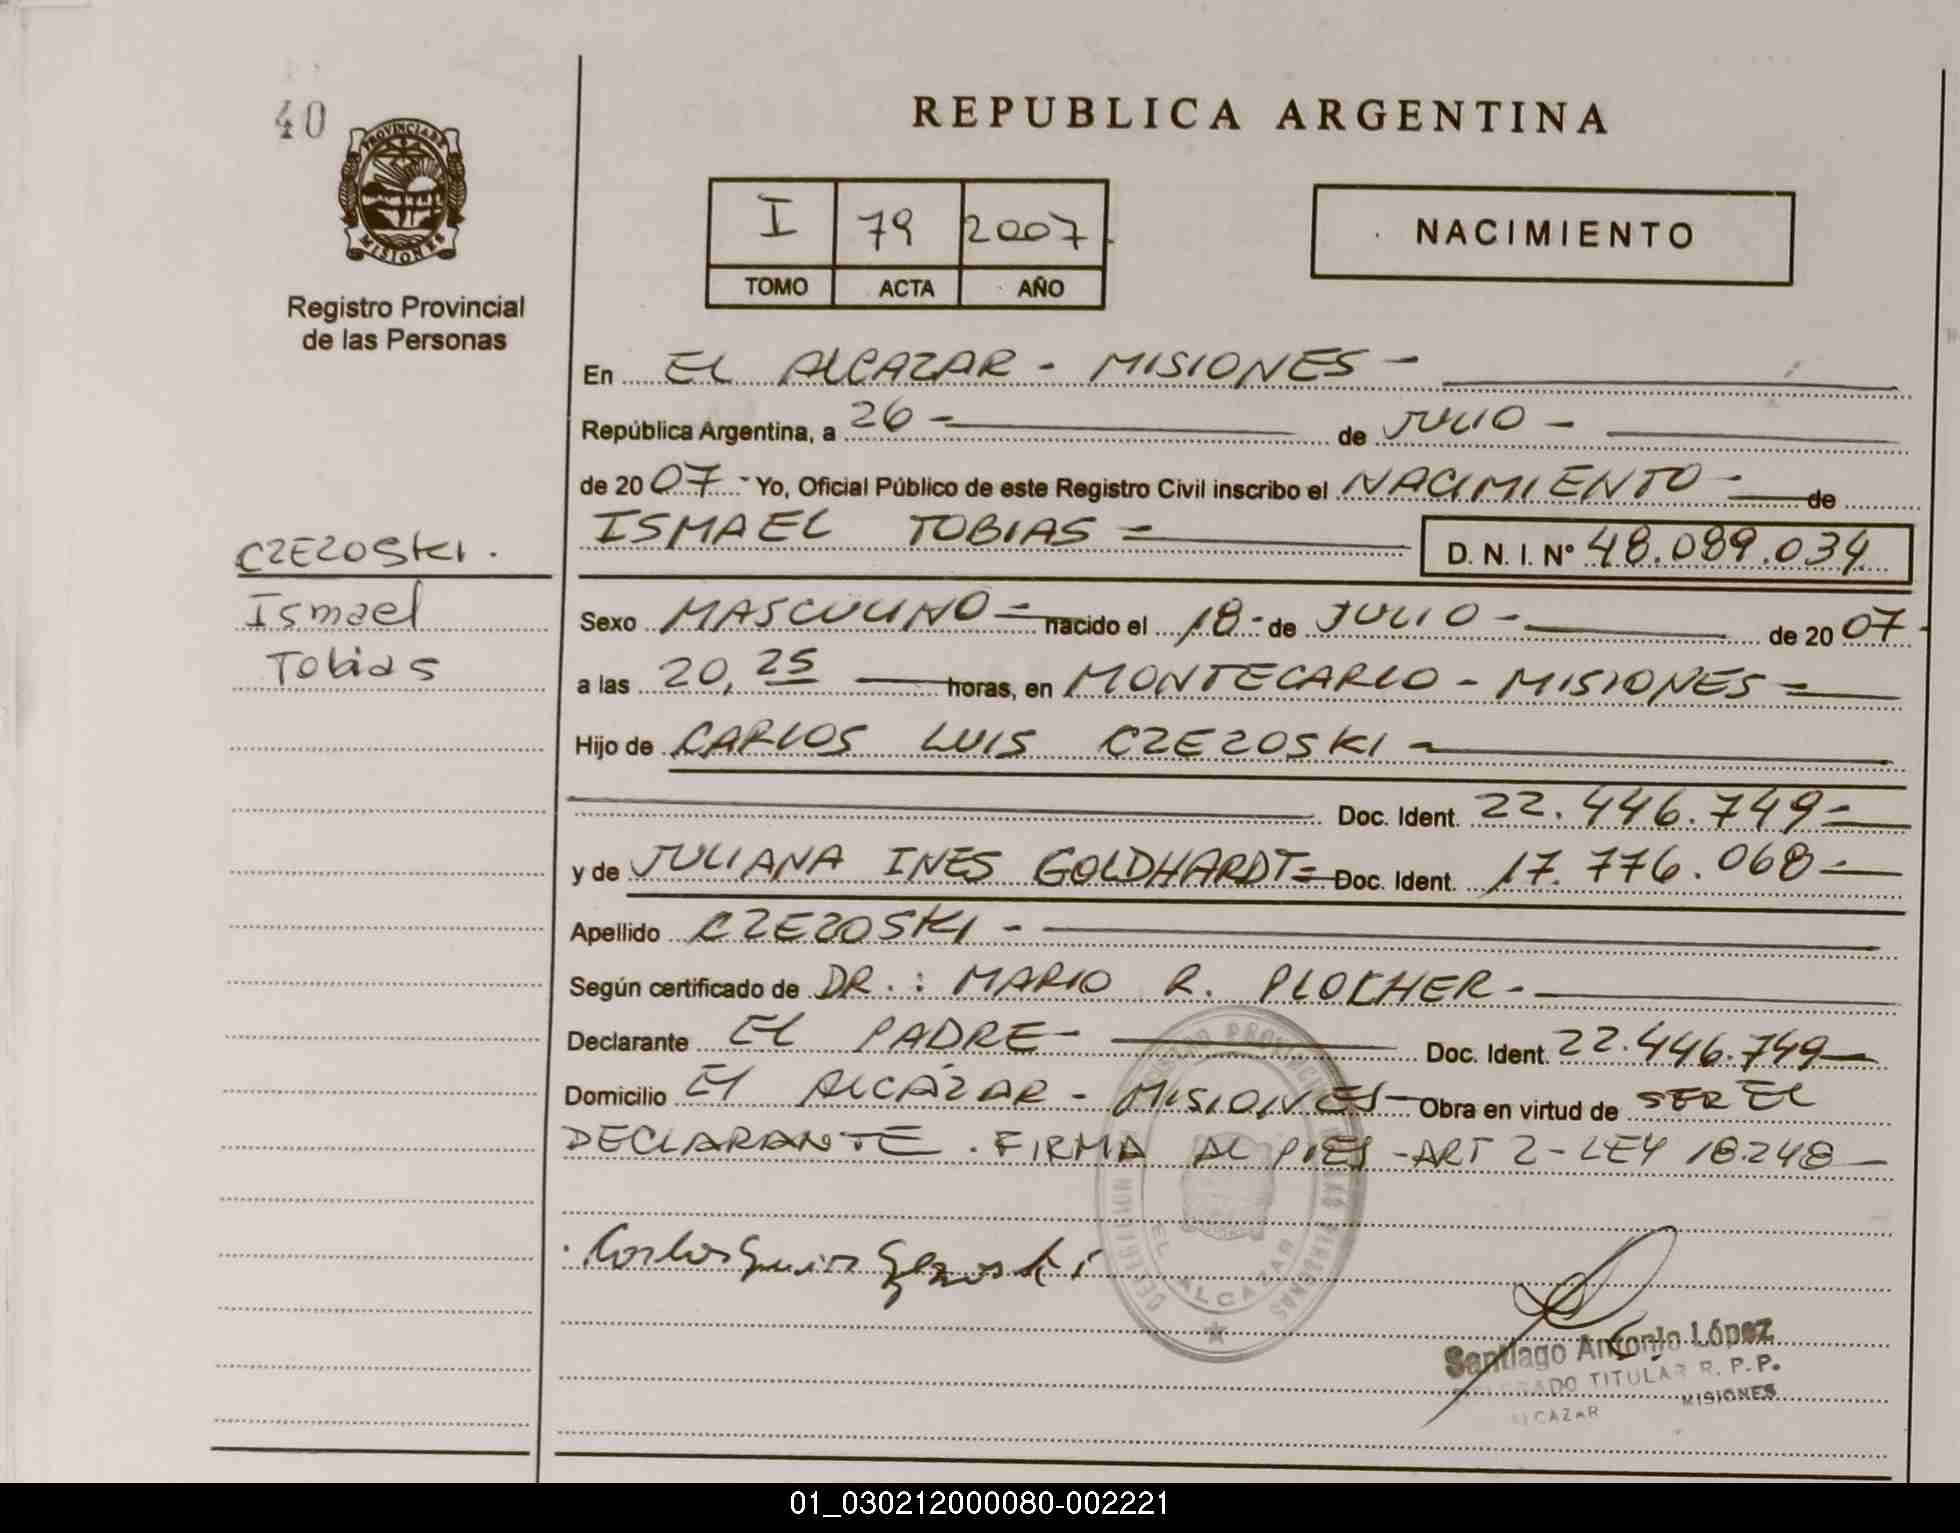 40
PROVINCIA DE
MISIONES
Registro Provincial
de las Personas
REPUBLICA ARGENTINA
I 79 2007
TOMO ACTA AÑO
NACIMIENTO
En EL ALCAZAR - MISIONES -
República Argentina, a 26 - de JULIO -
de 2007 - Yo, Oficial Público de este Registro Civil inscribo el NACIMIENTO - de
ISMAEL TOBIAS = D. N. I. N° 48.089.034
CZEZOSKI.
Ismael
Tobias
Sexo MASCULINO = nacido el 18 - de JULIO - de 2007 -
a las 20,25 horas, en MONTECARLO - MISIONES =
Hijo de CARLOS LUIS CZEZOSKI -
Doc. Ident. 22.446.749 =
y de JULIANA INES GOLDHARDT = Doc. Ident. 17.776.068 -
Apellido CZEZOSKI -
Según certificado de DR.: MARIO R. PLOCHER -
Declarante EL PADRE - Doc. Ident. 22.446.749 -
Domicilio El ALCÁZAR - MISIONES - Obra en virtud de SER EL
DECLARANTE. FIRMA AL PIES - ART 2 - LEY 18248 -
Carlos Luis Czezoski
EL ALCAZAR
Santiago Antonio López
TITULAR R. P. P.
ALCAZAR MISIONES
01_030212000080-002221